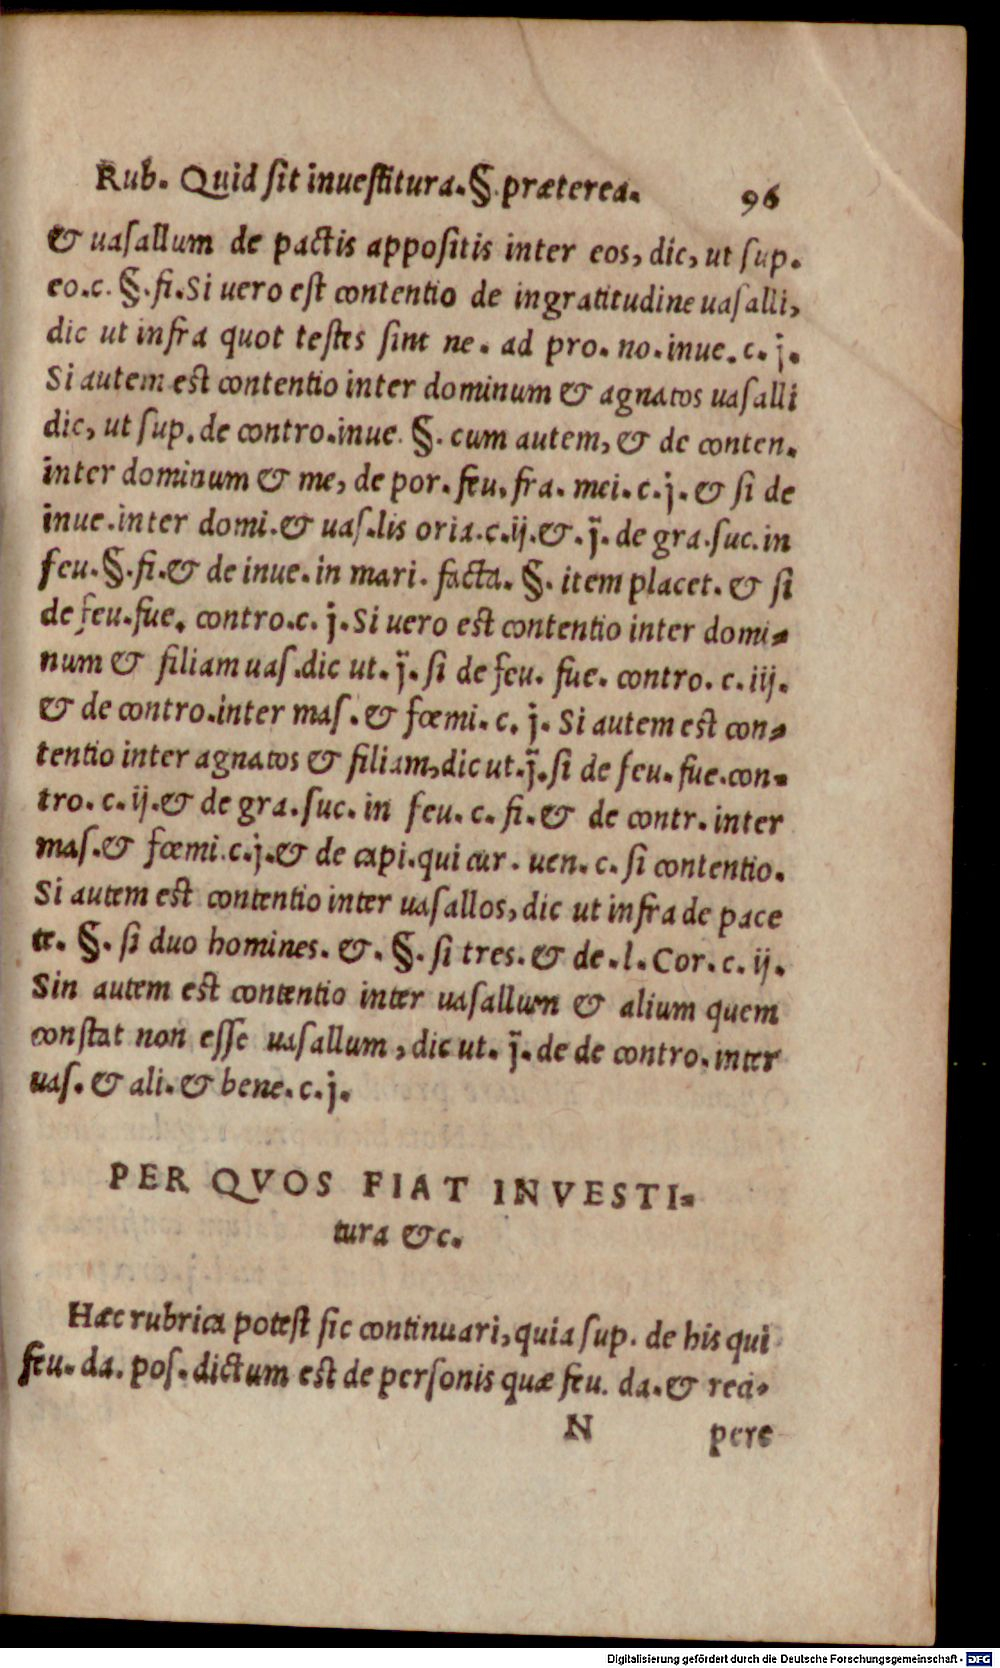 Rub. Quid sit inuestitura. §. præterea. 96
& uasallum de pactis appositis inter eos, dic, ut sup.
eo.c. §. fi. Si uero est contentio de ingratitudine uasalli,
dic ut infra quot testes sint ne. ad pro. no. inue. c. j.
Si autem est contentio inter dominum & agnatos uasalli
dic, ut sup. de contro. inue. §. cum autem, & de conten.
inter dominum & me, de por. feu. fra. mei. c. j. & si de
inue. inter domi. & uas. lis oria. c. ij. & . j. de gra. suc. in
feu. §. fi. & de inue. in mari. facta. §. item placet. & si
de feu. fue. contro. c. j. Si uero est contentio inter domi-
num & filiam uas. dic ut. j. si de feu. fue. contro. c. iij.
& de contro. inter mas. & fœmi. c. j. Si autem est con-
tentio inter agnatos & filiam, dic ut. j. si de feu. fue. con-
tro. c. ij. & de gra. suc. in feu. c. fi. & de contr. inter
mas. & fœmi. c. j. & de capi. qui cur. uen. c. si contentio.
Si autem est contentio inter uasallos, dic ut infra de pace
te. §. si duo homines. &. §. si tres. & de. l. Cor. c. ij.
Sin autem est contentio inter uasallum & alium quem
constat non esse uasallum, dic ut. j. de de contro. inter
uas. & ali. & bene. c. j.
PER QVOS FIAT INVESTI-
tura &c.
Hæc rubrica potest sic continuari, quia sup. de his qui
feu. da. pos. dictum est de personis quæ feu. da. & reci-
N pere
Digitalisierung gefördert durch die Deutsche Forschungsgemeinschaft - DFG